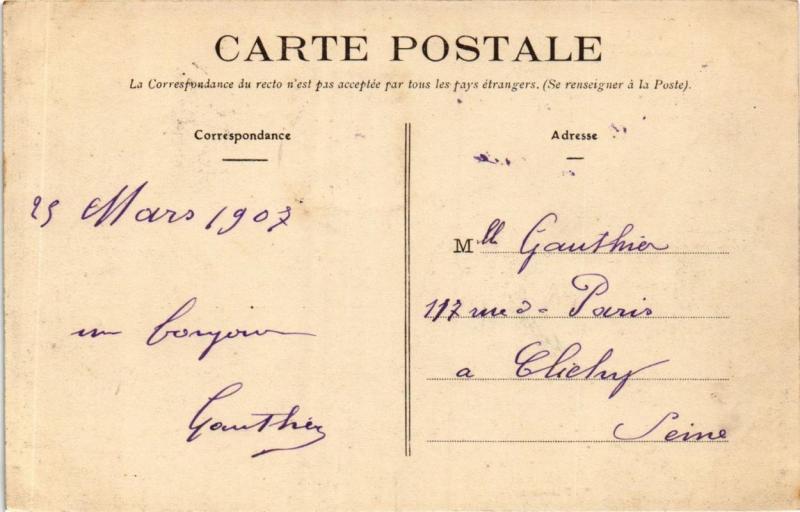 CARTE POSTALE
La Correspondance du recto n'est pas acceptée par tous les pays étrangers. (Se renseigner à la Poste).
Correspondance
25 Mars 1907
un bonjour
Gauthier
Adresse
Mlle Gauthier
117 rue de Paris
a Clichy
Seine